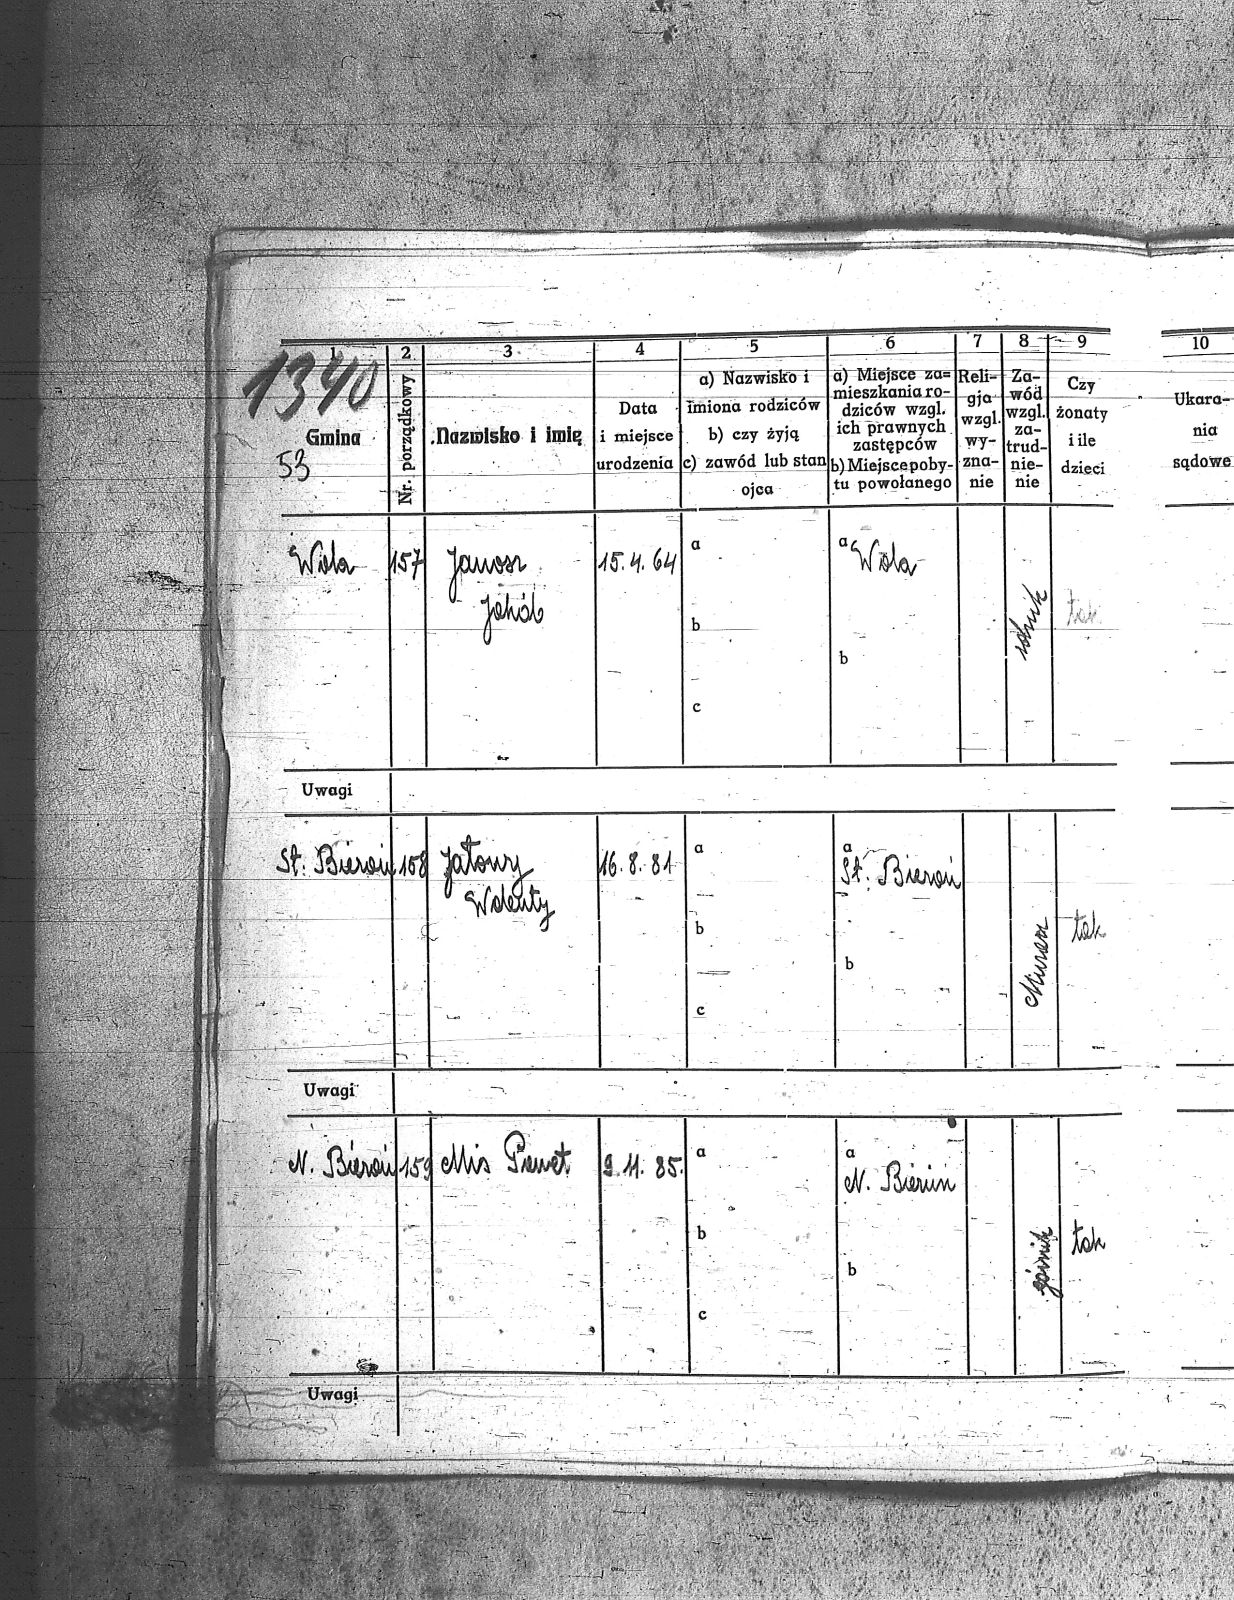 1 2 3 4 5 6 7 8 9 10
1340
53
Gmina
Nr. porządkowy
Nazwisko i imię
Data
i miejsce
urodzenia
a) Nazwisko i
imiona rodziców
b) czy żyją
c) zawód lub stan
ojca
a) Miejsce za=
mieszkania ro-
dziców wzgl.
ich prawnych
zastępców
b) Miejsce poby-
tu powołanego
Reli-
gja
wzgl.
wy-
zna-
nie
Za-
wód
wzgl.
za-
trud-
nie-
nie
Czy
żonaty
i ile
dzieci
Ukara-
nia
sądowe
Wola 157 Janosz 15.4.64 a a Wola
Jakób
rolnik tak
b
b
c
Uwagi
St. Bieruń 158 Jałowy 16.8.81 a a
St. Bieruń
Walenty
b
Murarz tak
b
c
Uwagi
N. Bieruń 159 Mis Paweł 9.11.85. a a
N. Bieruń
b
górnik tak
b
c
Uwagi